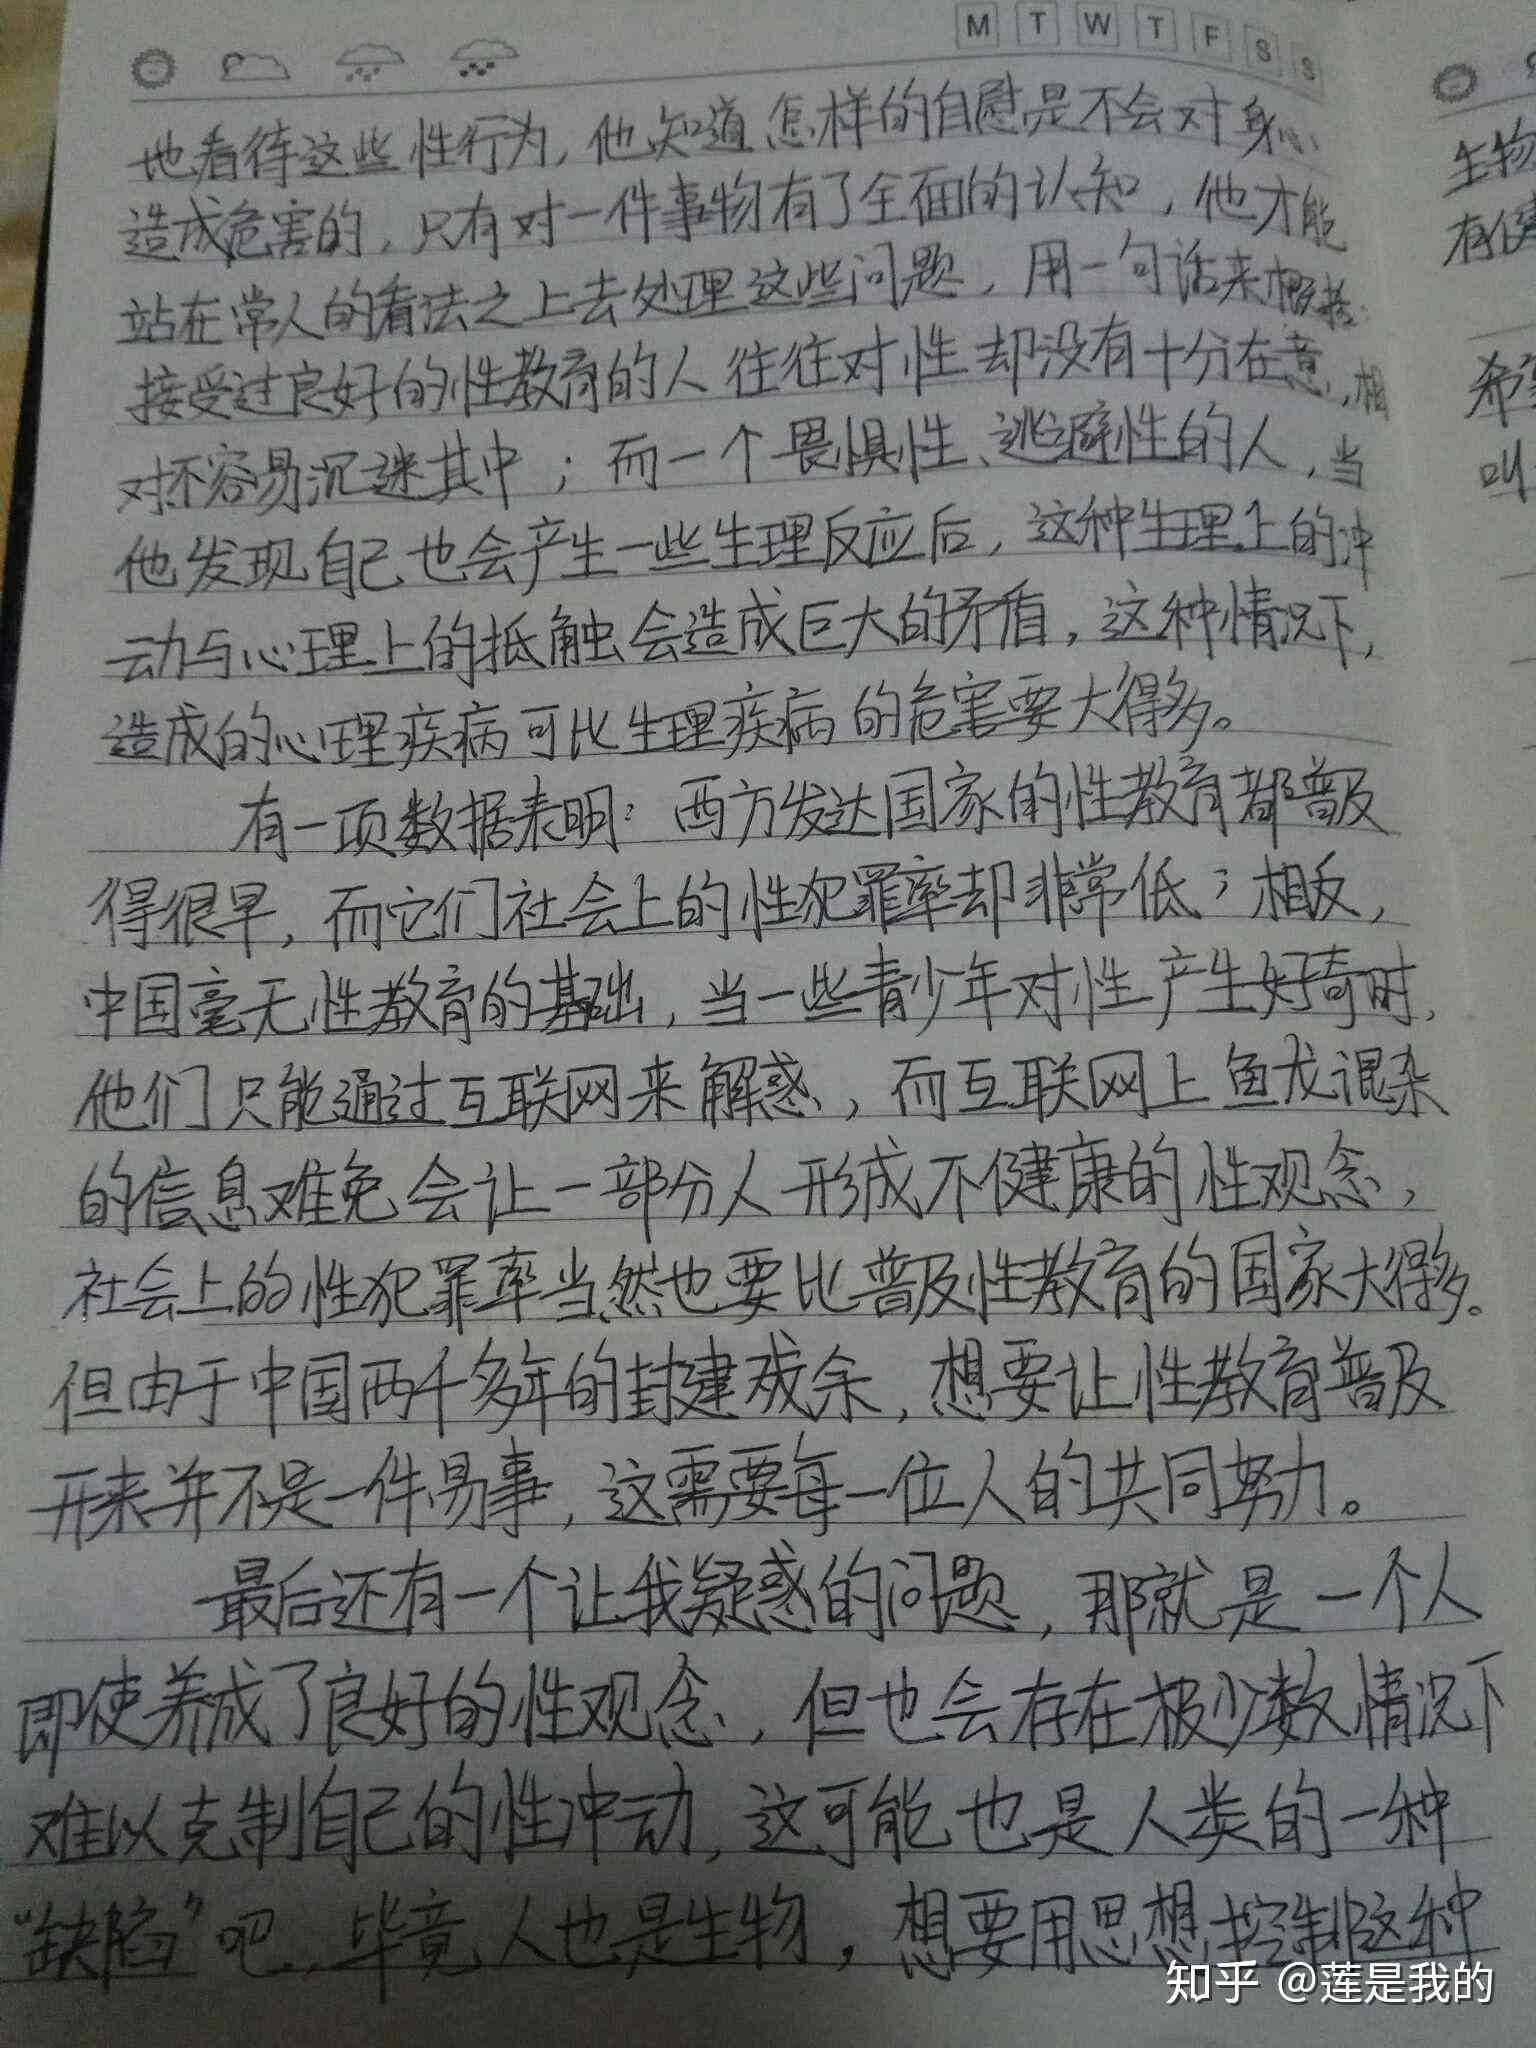 M T W T F S S
地看待这些性行为，他知道怎样的自慰是不会对身心
造成危害的，只有对一件事物有了全面的认知，他才能
站在常人的看法之上去处理这些问题，用一句话来概括：
接受过良好的性教育的人往往对性却没有十分在意，相
对不容易沉迷其中；而一个畏惧性、逃避性的人，当
他发现自己也会产生一些生理反应后，这种生理上的冲
动与心理上的抵触会造成巨大的矛盾，这种情况下，
造成的心理疾病可比生理疾病的危害要大得多。
有一项数据表明：西方发达国家的性教育都普及
得很早，而它们社会上的性犯罪率却非常低；相反，
中国毫无性教育的基础，当一些青少年对性产生好奇时，
他们只能通过互联网来解惑，而互联网上鱼龙混杂
的信息难免会让一部分人形成不健康的性观念，
社会上的性犯罪率当然也要比普及性教育的国家大得多。
但由于中国两千多年的封建残余，想要让性教育普及
开来并不是一件易事，这需要每一位人的共同努力。
最后还有一个让我疑惑的问题，那就是一个人
即使养成了良好的性观念，但也会存在极少数情况下
难以克制自己的性冲动，这可能也是人类的一种
“缺陷”吧，毕竟人也是生物，想要用思想控制这种
生物
有
希
叫
知乎 @莲是我的